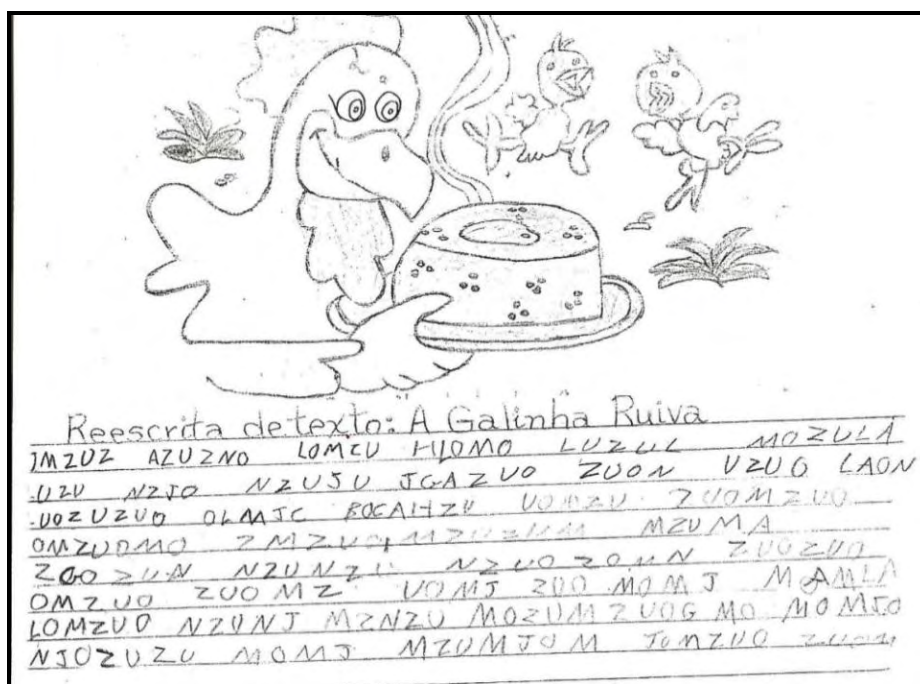 Reescrita de texto: A Galinha Ruiva
JMZUZ AZUZNO LOMCU LUZUL MOZULA
UZU NZJO NZUJU JGAZUO ZUON UZUO LAON
UOZUZUO OLMJC UOMZU ZUOMZUO
OMZUOMO MZUMA
ZOO ZUN NZUNZU NZUO ZOUN ZUOZUO
OMZUO ZUOMZ UOMJ ZOO MOMJ MAMLA
LOMZUO NZUNJ MZNZU MOZUM ZUOG MO MOMJO
NJOZUZU MOMJ MZUMJOM JOMZUO ZUOM